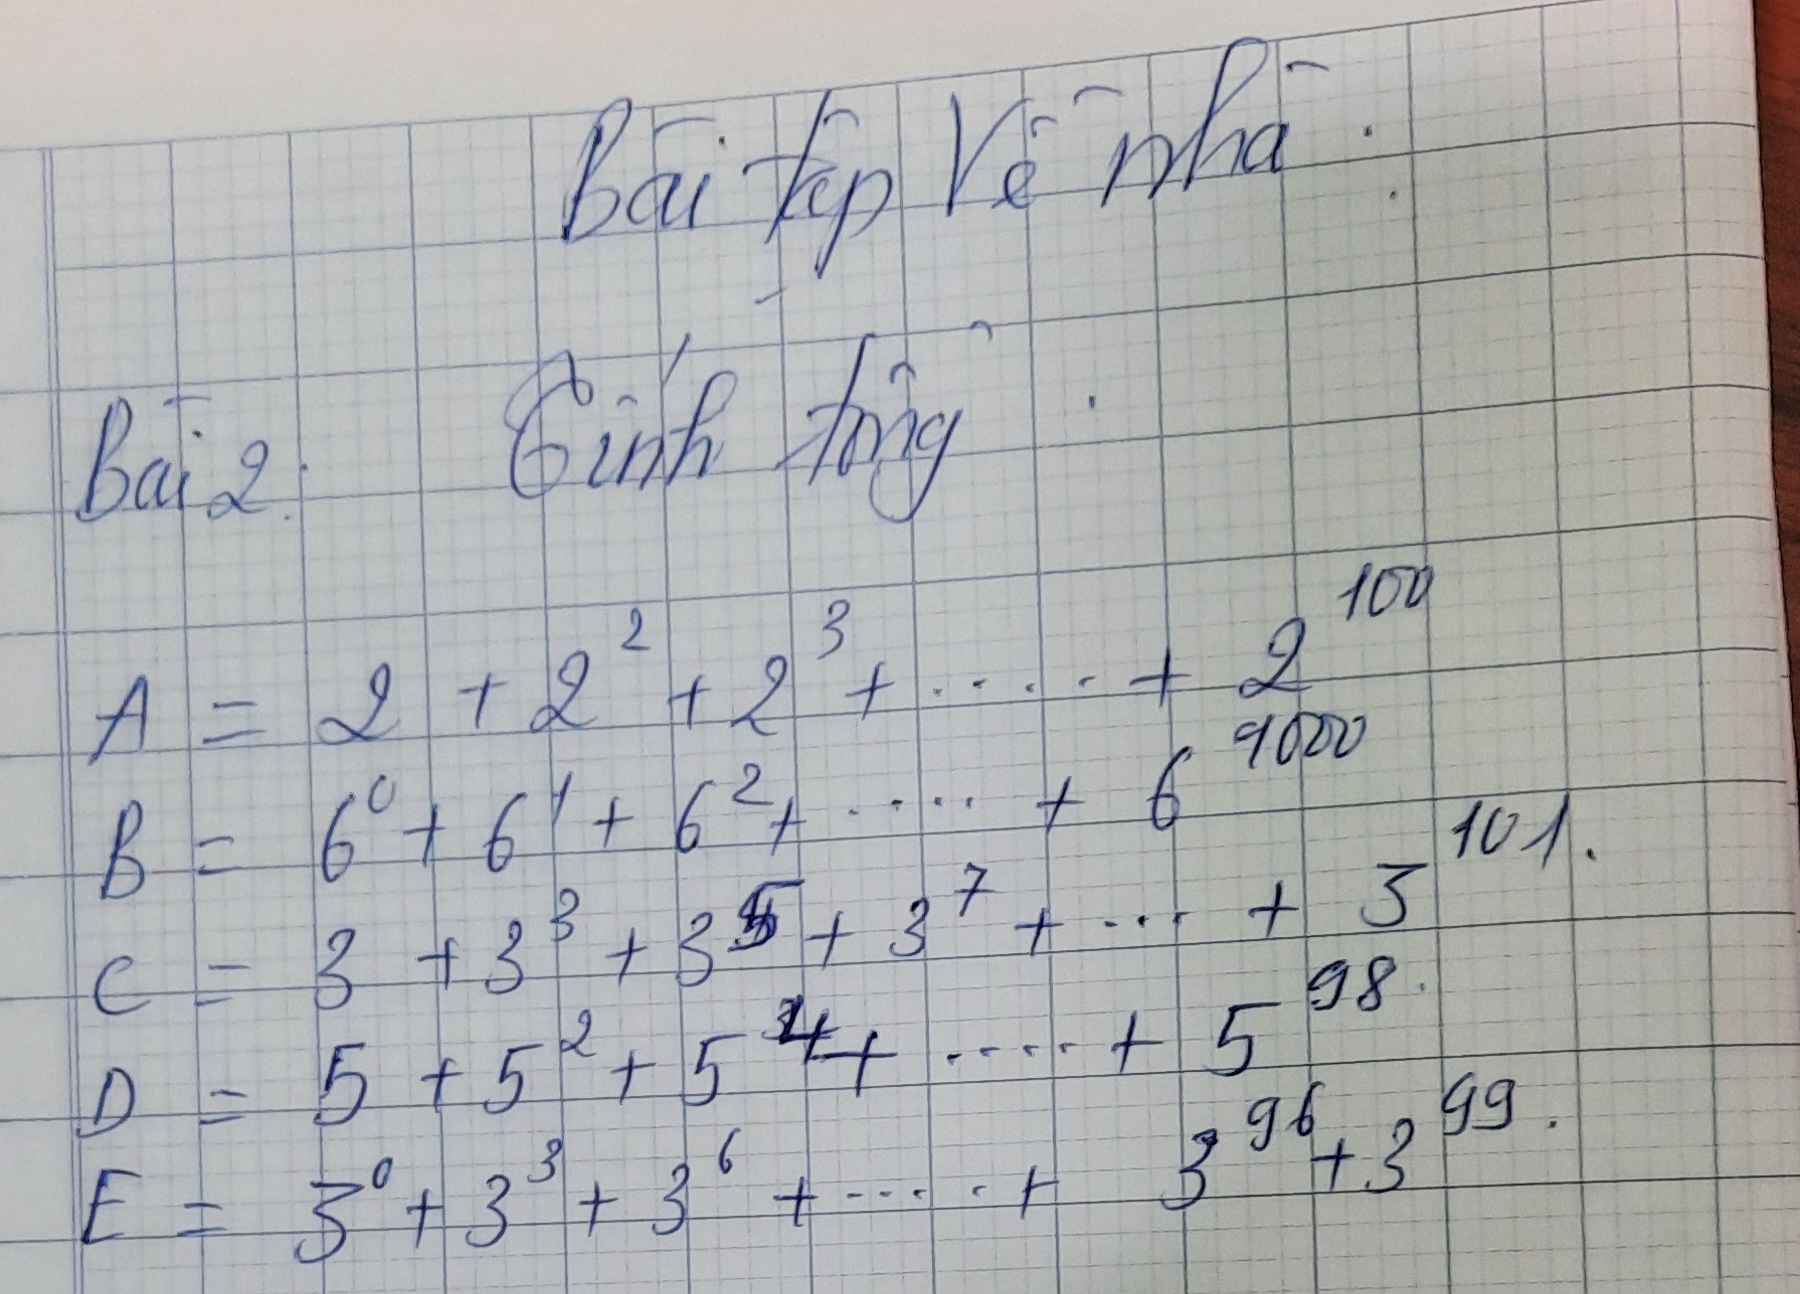 Bài tập Về nhà.
Bài 2: Tính tổng
A = 2 + 2² + 2³ + ..... + 2¹⁰⁰
B = 6⁰ + 6¹ + 6² + ..... + 6¹⁰⁰⁰
C = 3 + 3³ + 3⁵ + 3⁷ + ... + 3¹⁰¹.
D = 5 + 5² + 5⁴ + ..... + 5⁹⁸.
E = 3⁰ + 3³ + 3⁶ + ..... + 3⁹⁶ + 3⁹⁹.